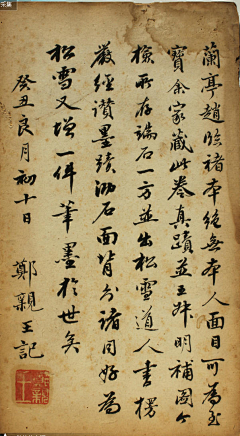 蘭亭趙臨褚本絕無本人面目可為至
寶余家藏此卷真蹟並王叔明補圖今
檢所存端石一方並出松雪道人書楞
嚴經讚墨蹟泐石面背分諸同好為
松雪又增一件筆墨於世矣
癸丑良月初十日
鄭親王記